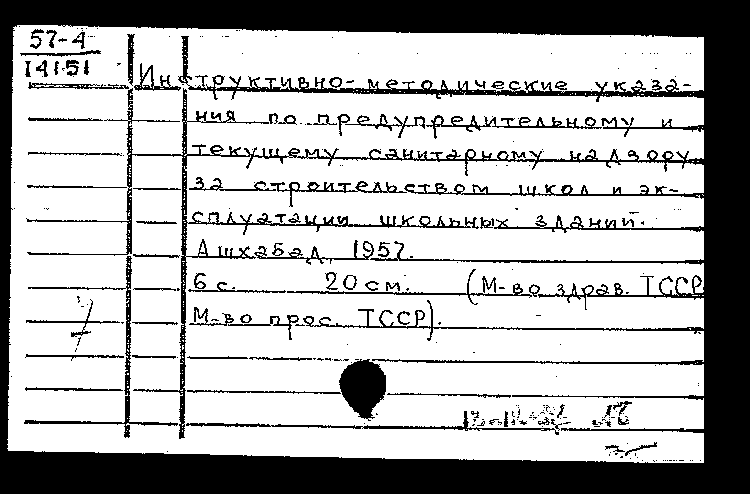 57-4
141·51
Инструктивно-методические указа-
ния по предупредительному и
текущему санитарному надзору
за строительством школ и эк-
сплуатации школьных зданий.
Ашхабад, 1957.
6 с. 20 см. (М-во здрав. ТССР
М-во прос. ТССР).